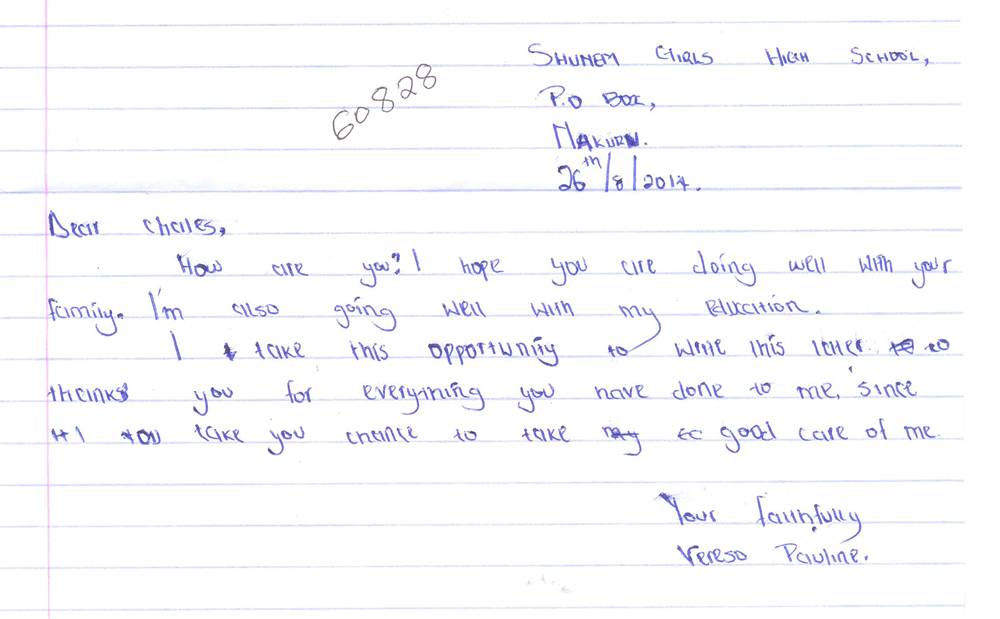 SHUNEM GIRLS HIGH SCHOOL,
60828
P.O BOX,
NAKURU.
26th/8/2014.
Dear Charles,
How are you? I hope you are doing well with your
family. I'm also going well with my Education.
I take this opportunity to write this letter to
thanks you for everything you have done to me, since
you take you chance to take good care of me.
Your faithfully
Vereso Pauline.